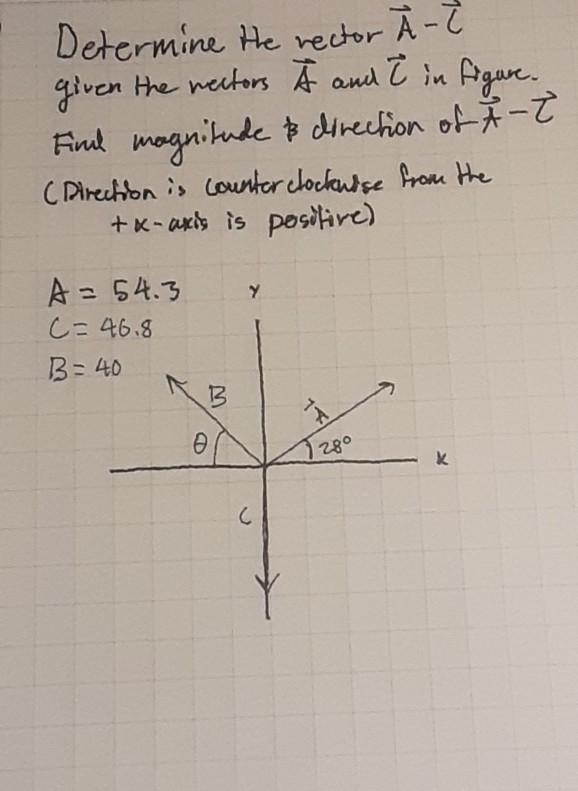 Determine the vector A⃗ - C⃗
given the vectors A⃗ and C⃗ in figure.
Find magnitude & direction of A⃗ - C⃗
(Direction is counterclockwise from the
+x-axis is positive)
A = 54.3
C = 46.8
B = 40
Y
B
A⃗
θ
28°
x
C